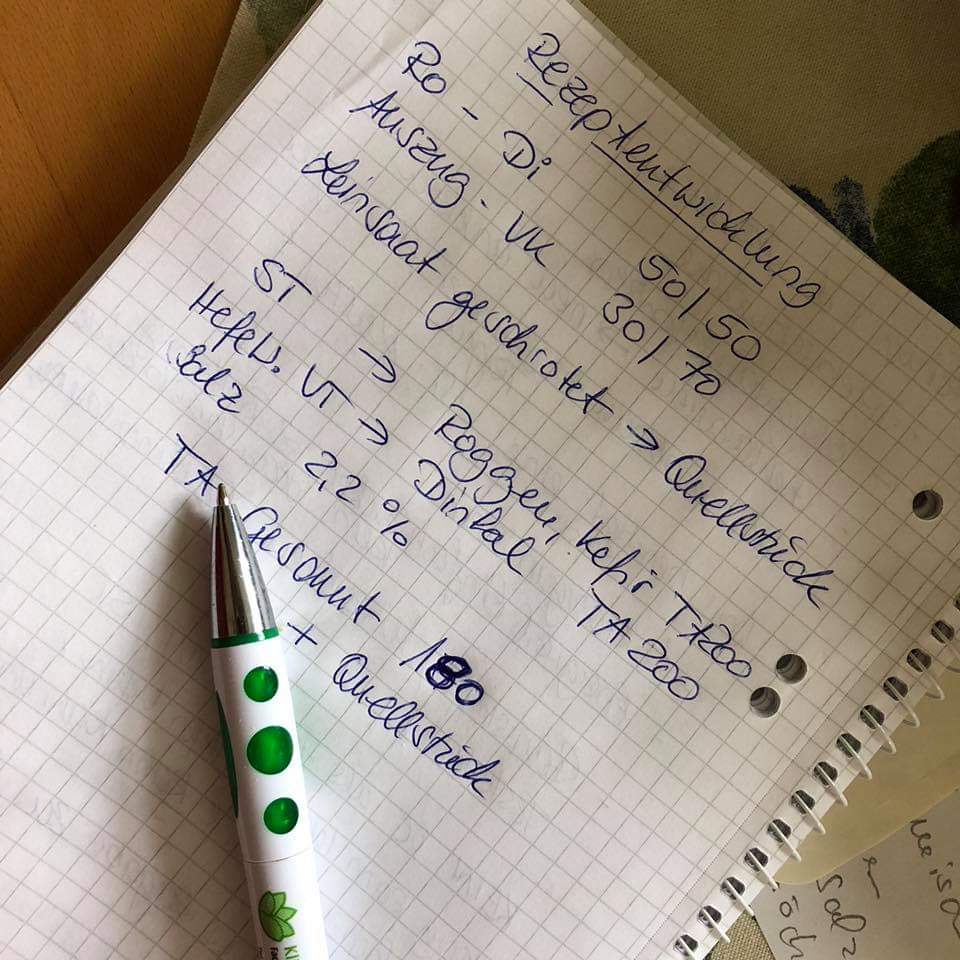 Rezeptentwicklung
Ro - Di 50/50
Auszug - VK 30/70
Leinsaat geschrotet → Quellstück
ST → Roggen, Kefir TA200
Hefels. VT → Dinkel TA 200
Salz 2,2 %
TA Gesamt 180
+ Quellstück
KI
salz